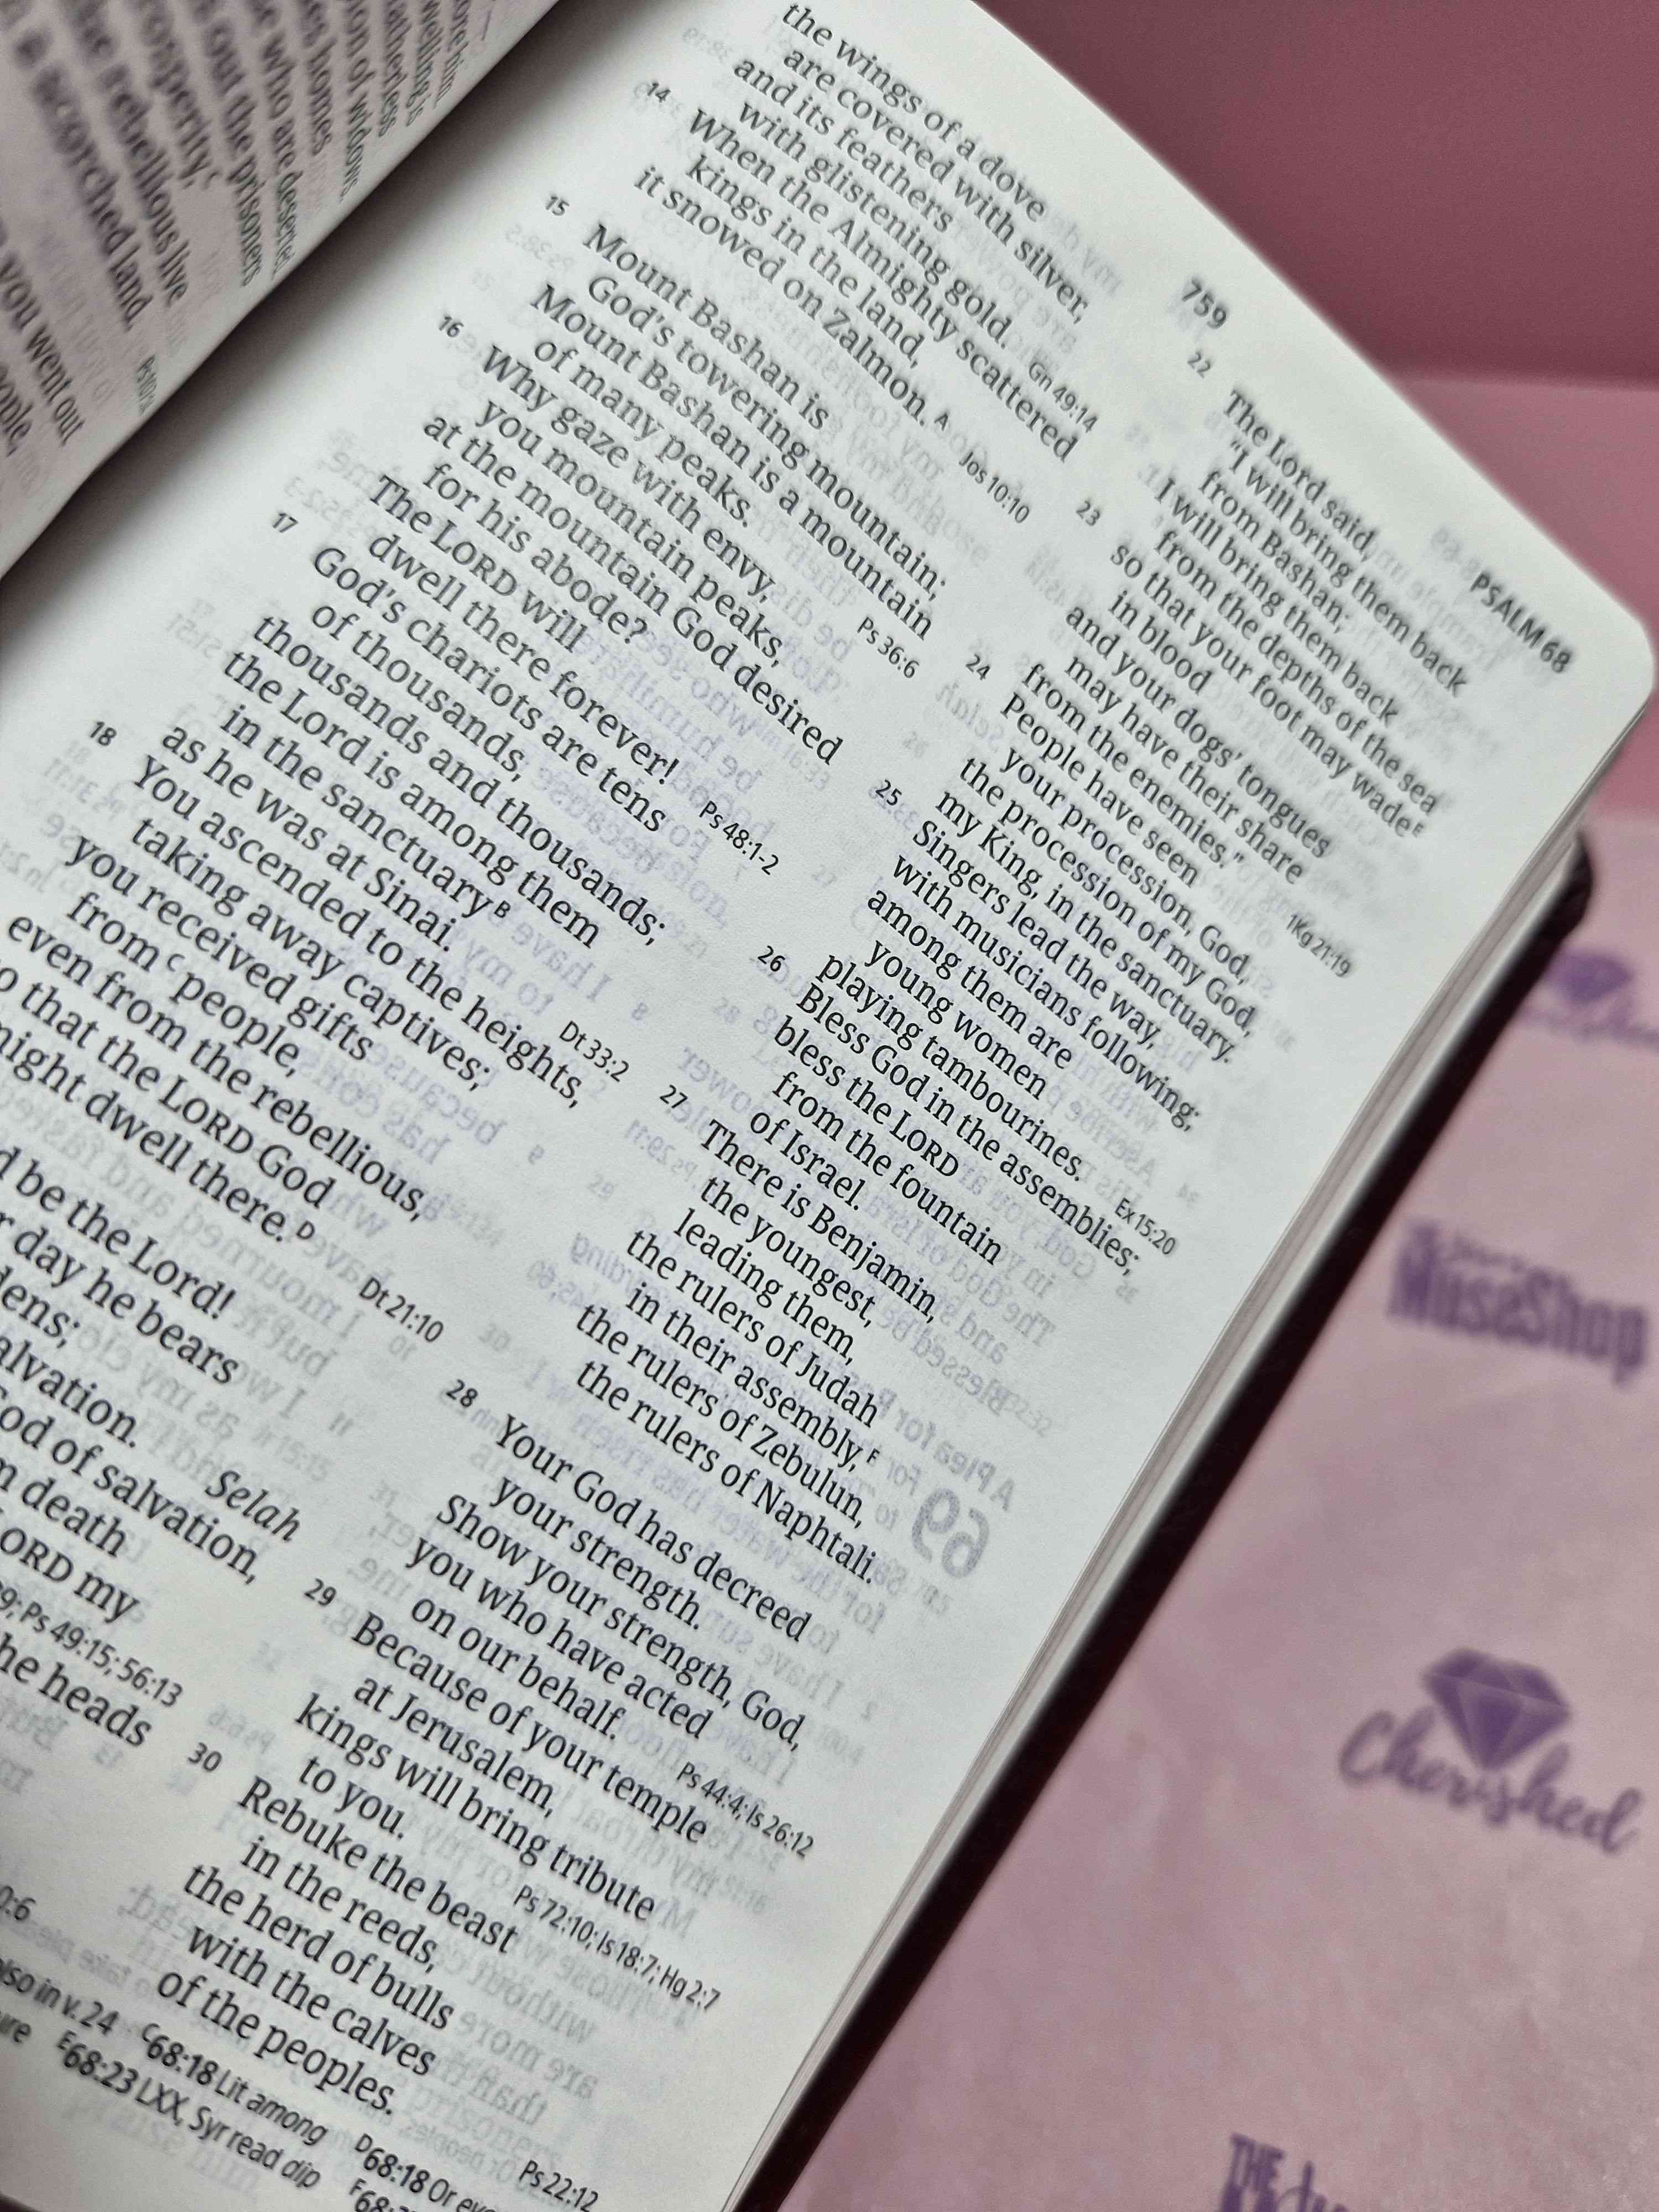 welling is
atherless
on of widows.
es homes
e who are deserted
out the prisoners
rosperity,
he rebellious live
a scorched land.
you went out
759
PSALM 68
the wings of a dove
are covered with silver,
and its feathers
with glistening gold. Gn 49:14
14 When the Almighty scattered
kings in the land,
it snowed on Zalmon.ᴬ Jos 10:10
15 Mount Bashan is
God's towering mountain;
Mount Bashan is a mountain
of many peaks. Ps 36:6
16 Why gaze with envy,
you mountain peaks,
at the mountain God desired
for his abode?
The LORD will
dwell there forever! Ps 48:1-2
17 God's chariots are tens
of thousands,
thousands and thousands;
the Lord is among them
in the sanctuaryᴮ
as he was at Sinai. Dt 33:2
18 You ascended to the heights,
taking away captives;
you received gifts
fromᶜ people,
even from the rebellious,
so that the LORD God
might dwell there.ᴰ Dt 21:10
be the Lord!
day he bears
salvation. Selah
God of salvation,
death
LORD my
9; Ps 49:15; 56:13
the heads
0:6
22 The Lord said,
"I will bring them back
from Bashan;
I will bring them back
from the depths of the sea
23 so that your foot may wadeᴱ
in blood
and your dogs' tongues
may have their share
from the enemies." 1Kg 21:19
24 People have seen
your procession, God,
the procession of my God,
my King, in the sanctuary.
25 Singers lead the way,
with musicians following;
among them are
young women
playing tambourines. Ex 15:20
26 Bless God in the assemblies;
bless the LORD
from the fountain
of Israel.
27 There is Benjamin,
the youngest,
leading them,
the rulers of Judah
in their assembly,ᶠ
the rulers of Zebulun,
the rulers of Naphtali.
28 Your God has decreed
your strength.
Show your strength, God,
you who have acted
on our behalf. Ps 44:4; Is 26:12
29 Because of your temple
at Jerusalem,
kings will bring tribute
to you. Ps 72:10; Is 18:7; Hg 2:7
30 Rebuke the beast
in the reeds,
the herd of bulls
with the calves
of the peoples. Ps 22:12
also in v. 24 ᶜ68:18 Lit among ᴰ68:18 Or
ᴱ68:23 LXX, Syr read dip
MUSESHOP
Cherished
THE